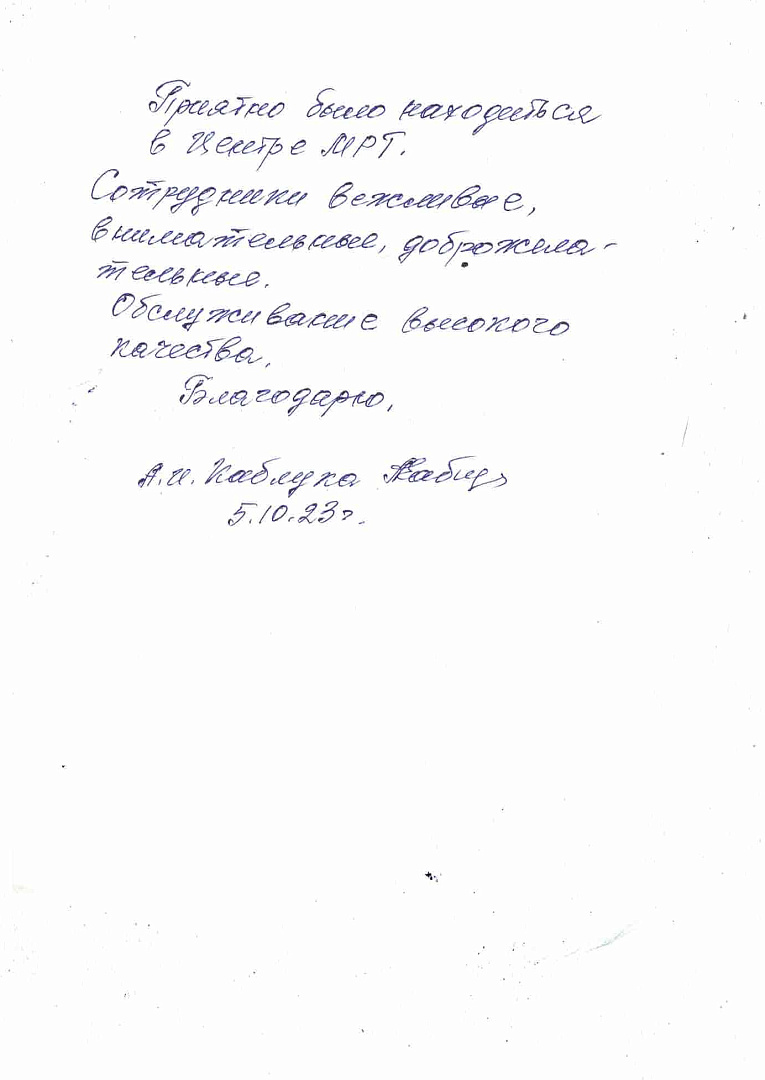 Приятно было находиться
в Центре МРТ.
Сотрудники вежливые,
внимательные, доброжела-
тельные.
Обслуживание высокого
качества.
Благодарю,
А.И. Каблука
5.10.23г.